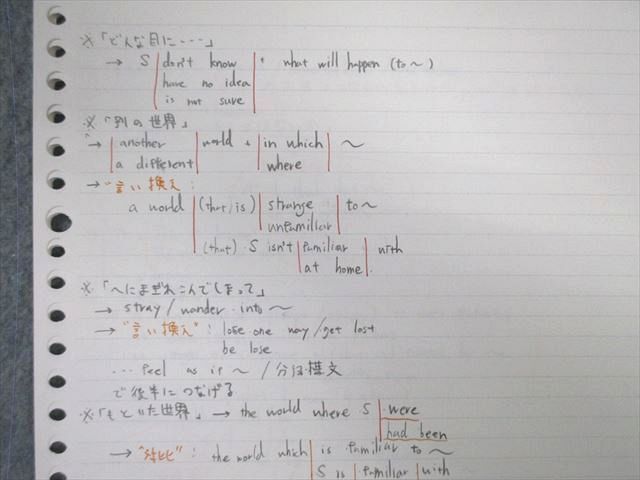 ※「どんな目に・・・」
→ S don't know + what will happen (to ~)
have no idea
is not sure
※「別の世界」
→ another world + in which ~
a different where
→ "言い換え:
a world (that is) strange to ~
unfamiliar
(that) S isn't familiar with
at home
※「~にまぎれこんでしまって」
→ stray / wander into ~
→ "言い換え" : lose one way / get lost
be lose
… feel as if ~ / 分詞構文
で後半につなげる
※「もといた世界」 → the world where S were
had been
→ "対比" : the world which is familiar to ~
S is familiar with